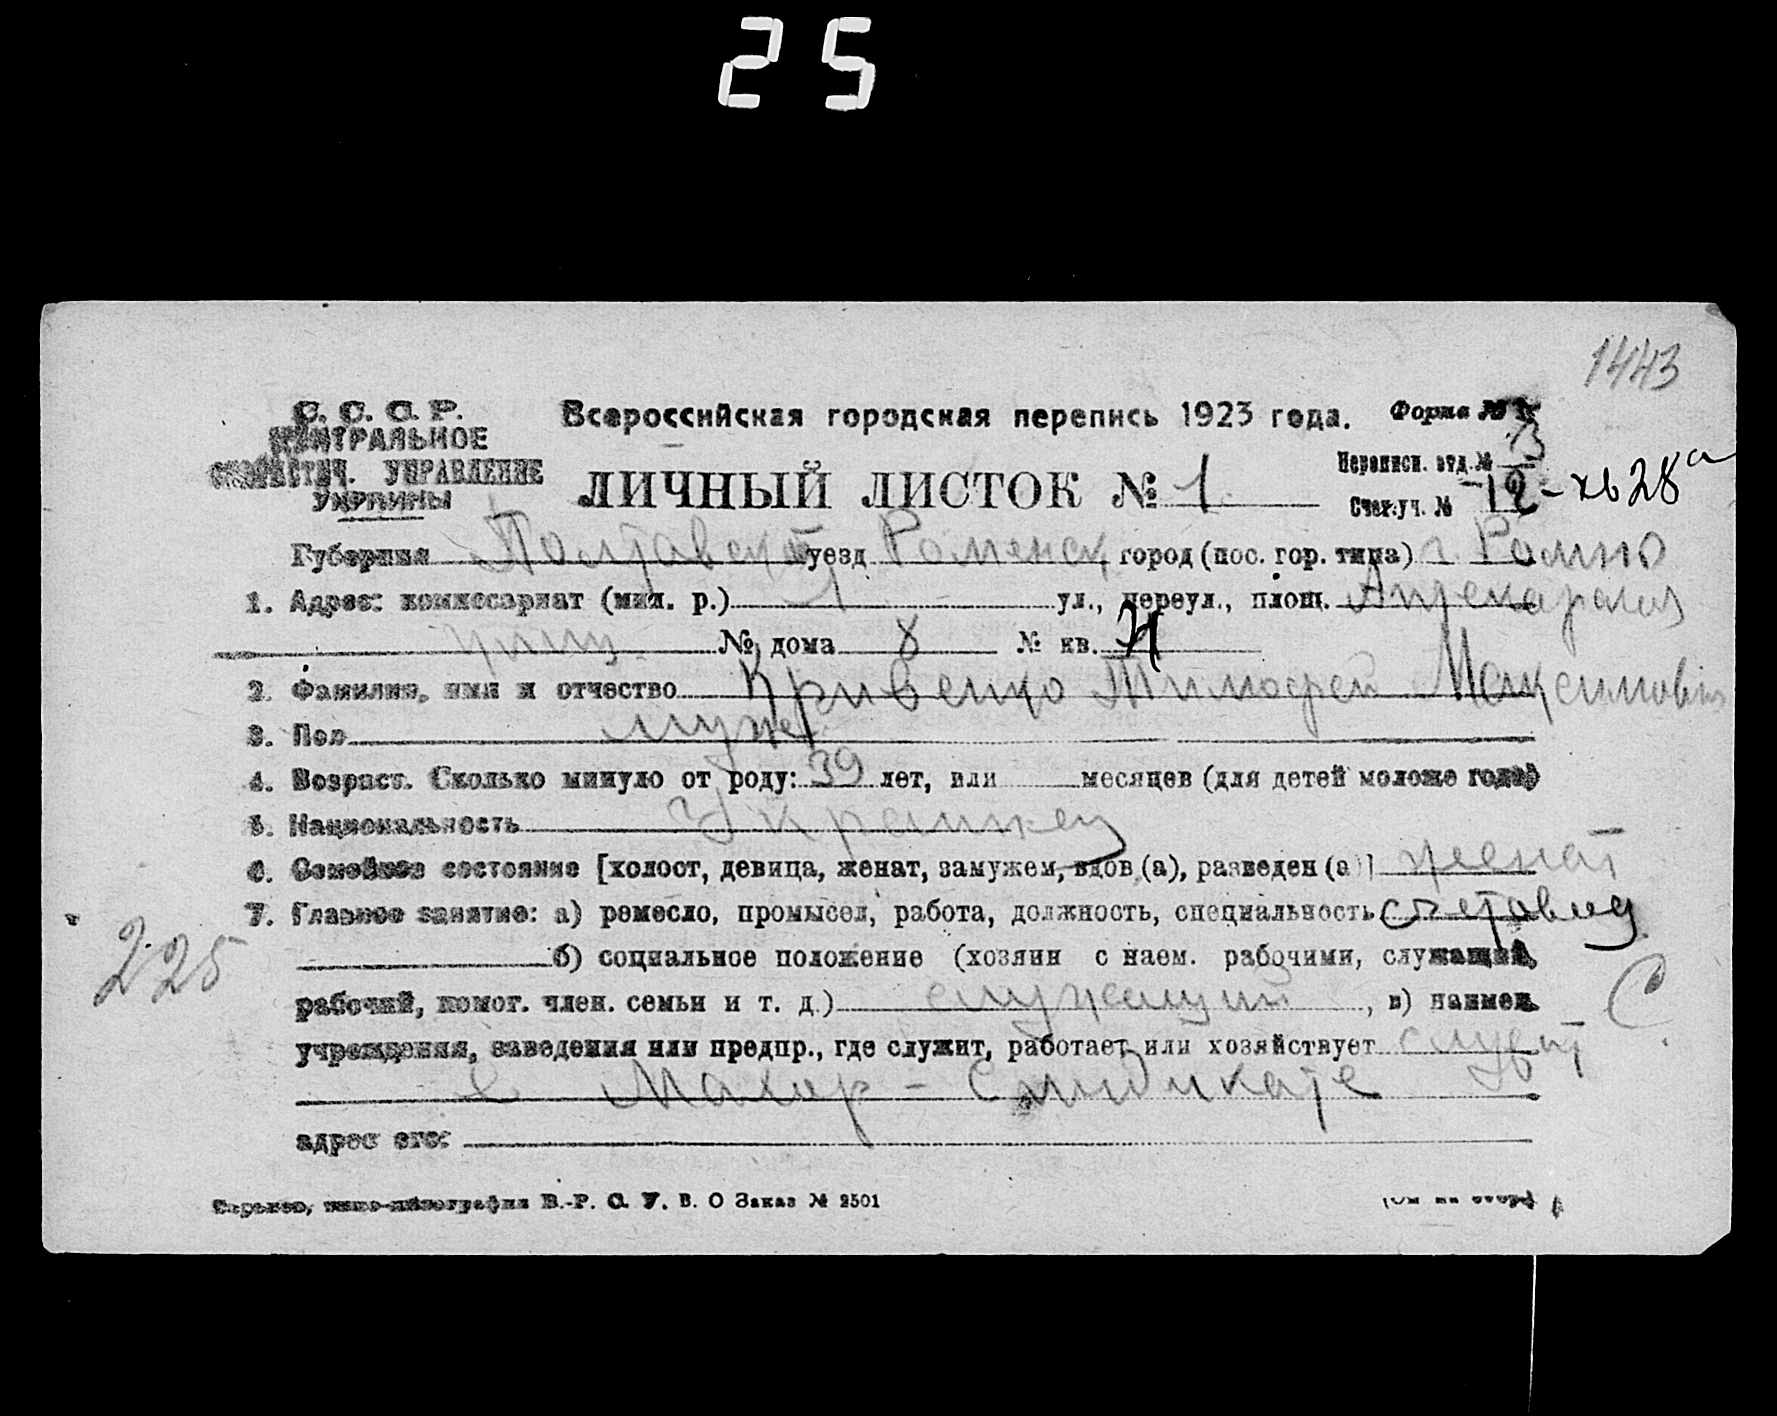 25
1443
С. С. С. Р.
ЦЕНТРАЛЬНОЕ
СТАТИСТИЧ. УПРАВЛЕНИЕ
УКРАИНЫ
Всероссийская городская перепись 1923 года. Форма №
ЛИЧНЫЙ ЛИСТОК № 1
Переписн. отд. № 3
Счетч. уч. № 12 - хв 28а
Губерния Полтавской уезд Роменск город (пос. гор. типа) г. Ромно
1. Адрес: комиссариат (мил. р.) 1 ул., переул., площ. Аптекарская
улиц. № дома 8 № кв.
2. Фамилия, имя и отчество Кривенко Тимофей Максимович
3. Пол муж.
4. Возраст. Сколько минуло от роду: 39 лет, или месяцев (для детей моложе года)
5. Национальность Украинец
6. Семейное состояние [холост, девица, женат, замужем, вдов (а), разведен (а)] женат
7. Главное занятие: а) ремесло, промысел, работа, должность, специальность счетовод
225
б) социальное положение (хозяин с наем. рабочими, служащий,
рабочий, помог. член. семьи и т. д.) служащий, в) наимен. С
учреждения, заведения или предпр., где служит, работает или хозяйствует служит
в Махор-Синдикате
адрес его:
Харьков, В.-Р. С. У. В. О Заказ № 2501